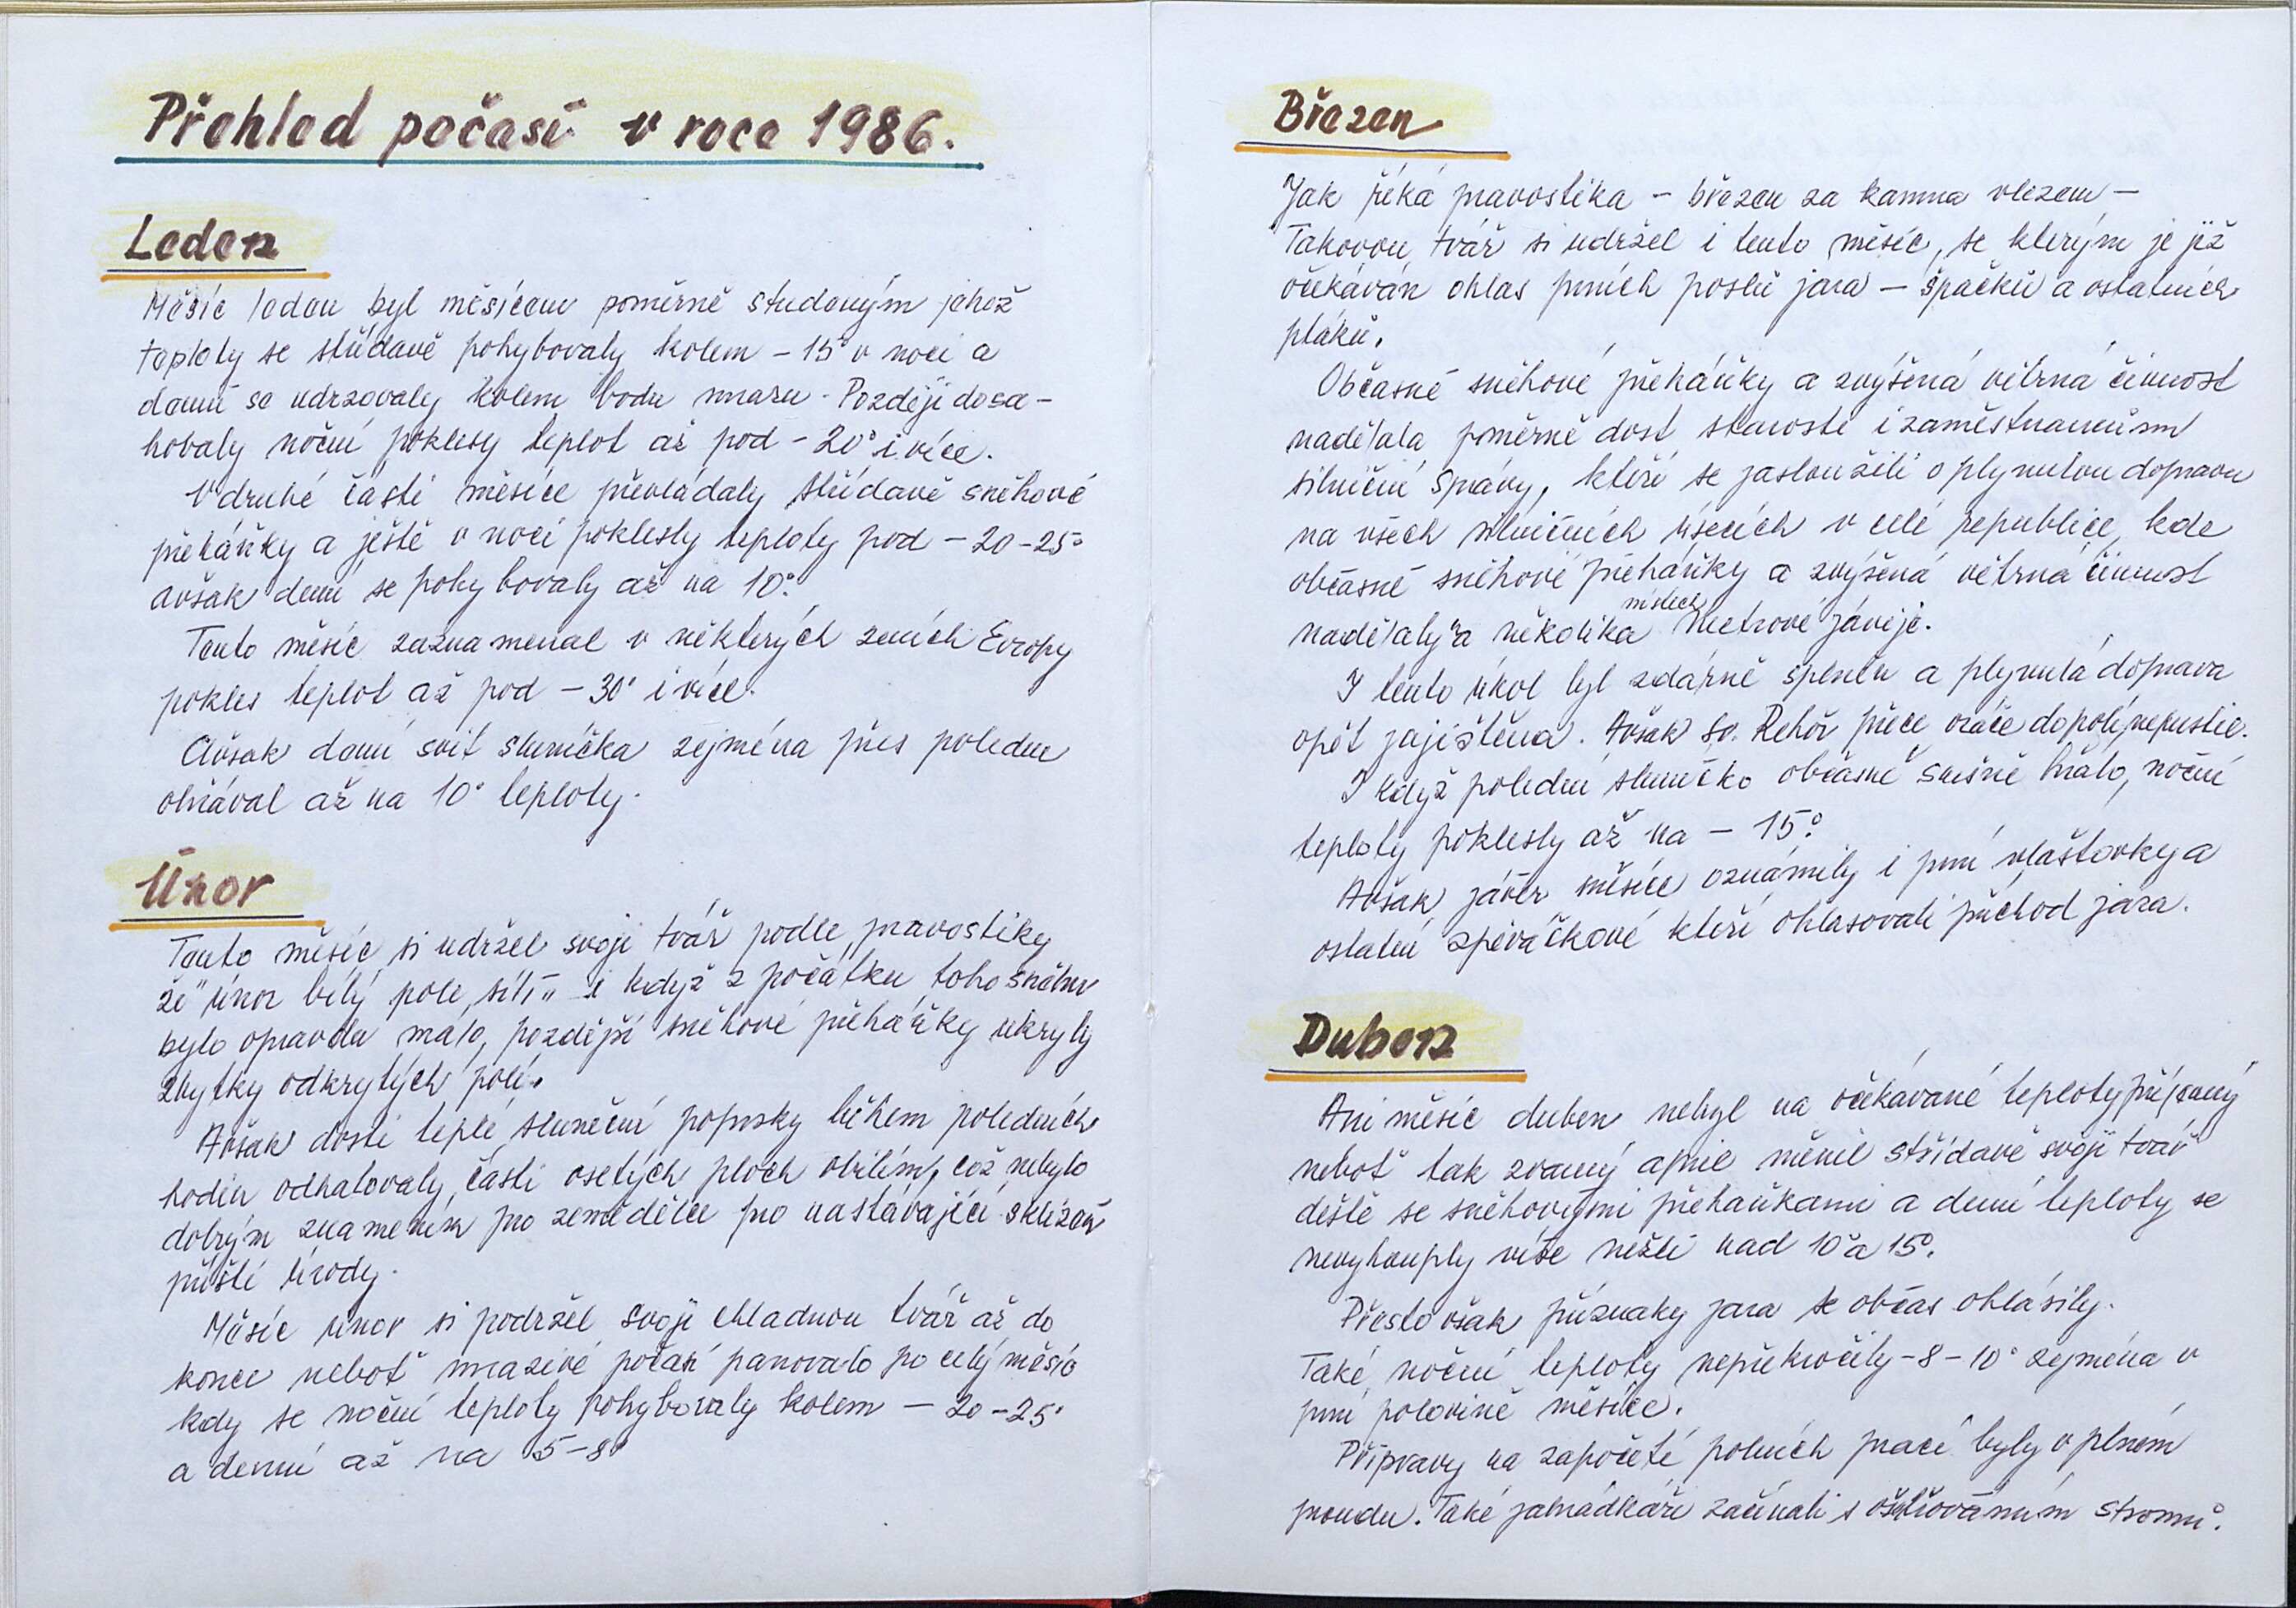 Přehled počasí v roce 1986.
Leden
Měsíc leden byl měsícem poměrně studeným jehož
teploty se střídavě pohybovaly kolem - 15° v noci a
denní se udrzovaly kolem bodu mrazu. Později dosa-
hovaly noční poklesy teplot až pod - 20° i více.
V druhé části měsíce převládaly střídavě sněhové
přeháňky a ještě v noci poklesly teploty pod - 20 - 25°
avšak denní se pohybovaly až na 10°.
Tento měsíc zaznamenal v některých zemích Evropy
pokles teplot až pod - 30° i více.
Avšak denní svit sluníčka zejména přes poledne
ohříval až na 10° teploty.
Únor
Tento měsíc si udržel svoji tvář podle pravostiky
že "únor bílý pole sílí" i když z počátku toho sněhu
bylo opravdu málo, pozdější sněhové přeháňky ukryly
zbytky odkrytých polí.
Avšak dosti teplé sluneční paprsky během poledních
hodin odhalovaly části osetých ploch obilím, což nebylo
dobrým znamením pro zemědělce pro nastávající sklizeň
příští úrody.
Měsíc únor si podržel svoji chladnou tvář až do
konce neboť mrazivé počasí panovalo po celý měsíc
kdy se noční teploty pohybovaly kolem - 20 - 25°
a denní až na 5 - 8°
Březen
Jak říká pravostika - březen za kamna vlezem -
Takovou tvář si udržel i tento měsíc, se kterým je již
očekáván ohlas prvních poslů jara - špačků a ostatních
ptáků.
Občasné sněhové přeháňky a zvýšená větrná činnost
nadělala poměrně dost starostí i zaměstnancům
silniční správy, kteří se zasloužili o plynulou dopravu
na všech silničních úsecích v celé republice, kde
občasné sněhové přeháňky a zvýšená větrná činnost
místech
nadělaly a několika metrové závěje.
I tento úkol byl zdárně splněn a plynulá doprava
opět zajištěna. Avšak sv. Řehoř přece oráče do polí nepustil.
I když polední sluníčko občasně slušně hřálo, noční
teploty poklesly až na - 15°.
Avšak závěr měsíce oznámily i první vlaštovky a
ostatní zpěváčkové kteří ohlašovali příchod jara.
Duben
Ani měsíc duben nebyl na očekávané teploty příjemný
neboť tak zvaný april měnil střídavě svoji tvář
deště se sněhovými přehaňkami a denní teploty se
nevyhouply výše nežli nad 10° a 15°.
Přesto však příznaky jara se občas ohlásily.
Také noční teploty nepřekročily - 8 - 10° zejména v
první polovině měsíce.
Přípravy na započetí polních prací byly v plném
proudu. Také zahrádkáři začínali s ošetřováním stromů.